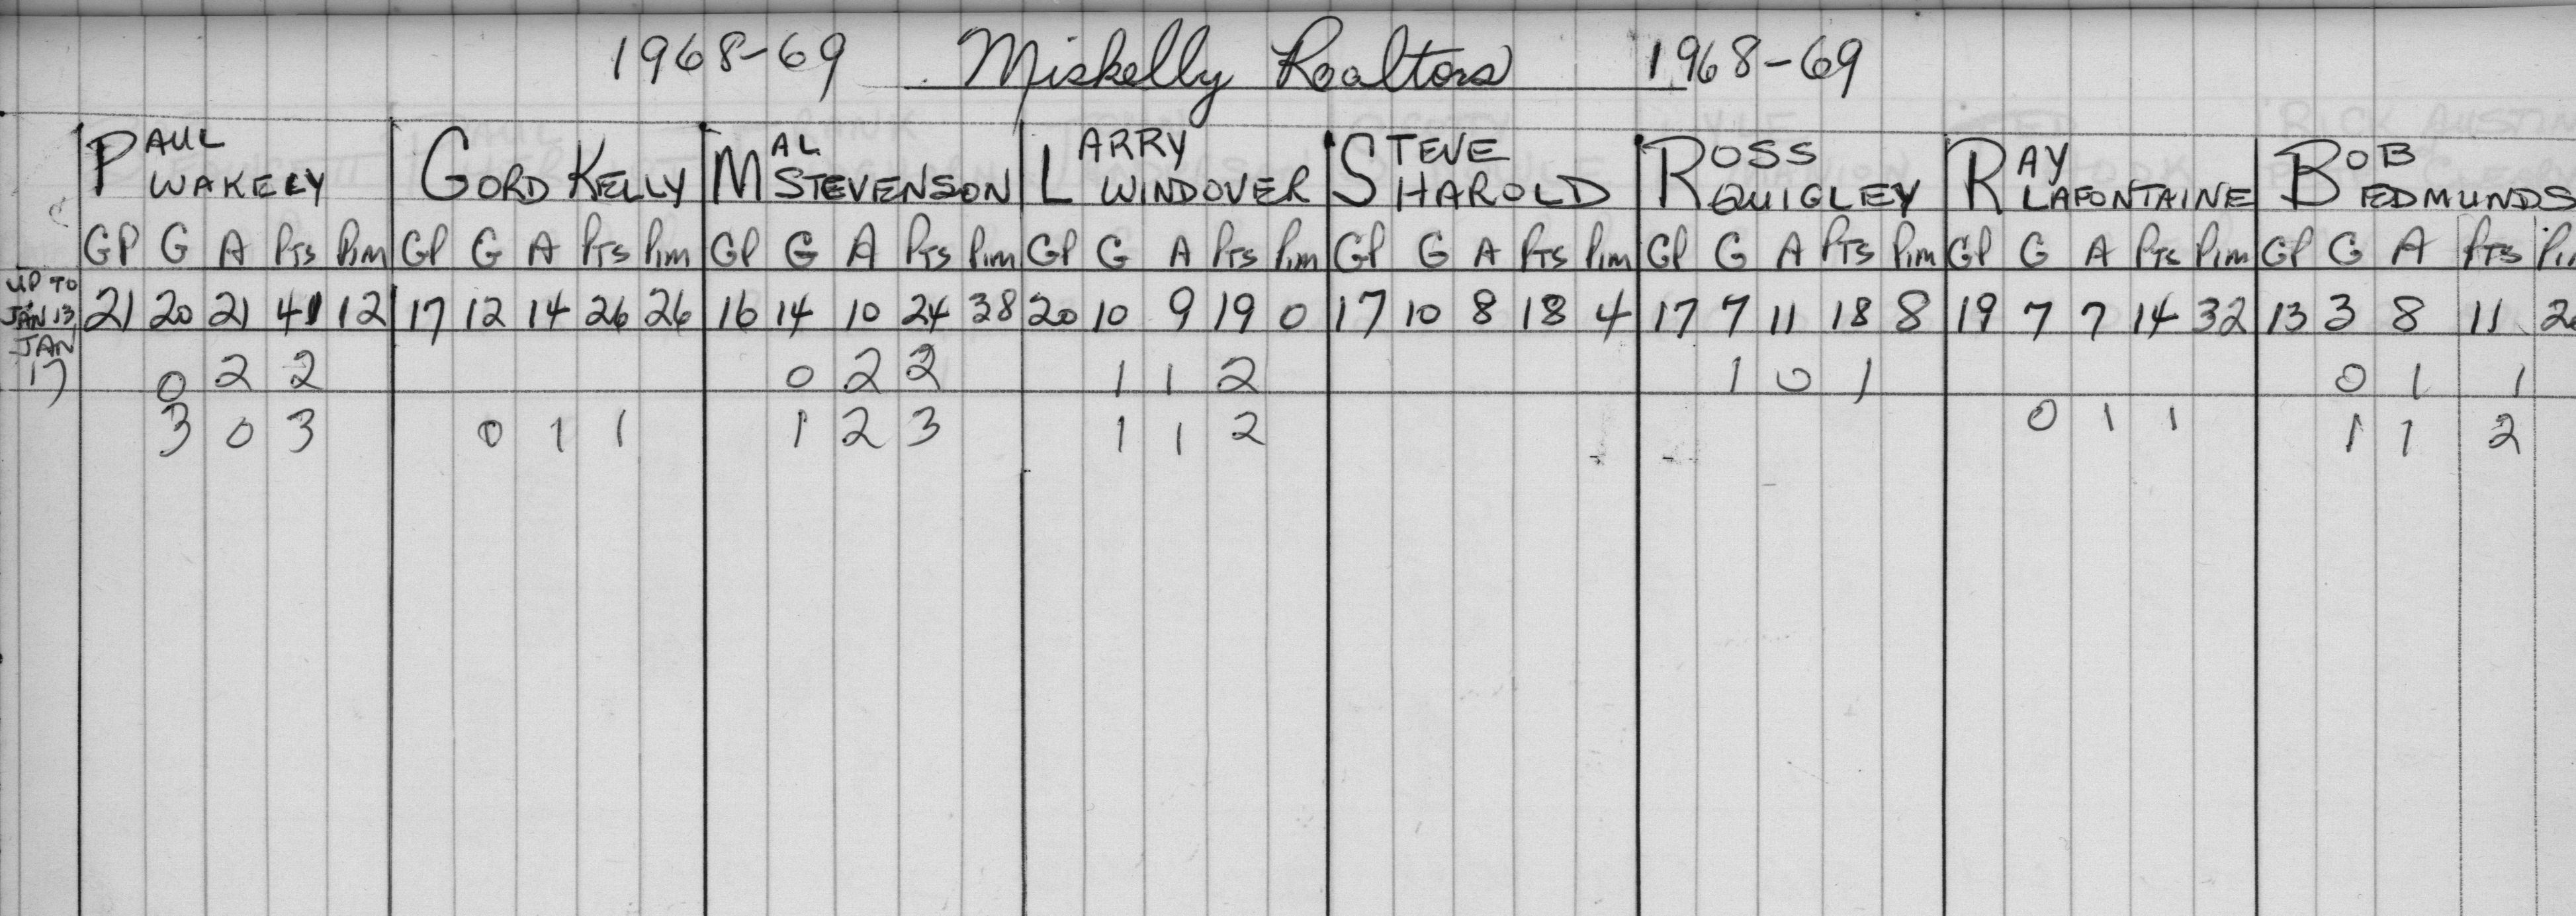 1968-69 Miskelly Realtors 1968-69
PAUL WAKELY GORD KELLY MAL STEVENSON LARRY WINDOVER STEVE HAROLD ROSS QUIGLEY RAY LAFONTAINE BOB EDMUNDS
GP G A Pts Pim GP G A Pts Pim GP G A Pts Pim GP G A Pts Pim GP G A Pts Pim GP G A Pts Pim GP G A Pts Pim GP G A Pts
UP TO JAN 13, 21 20 21 41 12 17 12 14 26 26 16 14 10 24 38 20 10 9 19 0 17 10 8 18 4 17 7 11 18 8 19 7 7 14 32 13 3 8 11
JAN 17 0 2 2 0 2 2 1 1 2 1 0 1 0 1 1
3 0 3 0 1 1 1 2 3 1 1 2 0 1 1 1 1 2